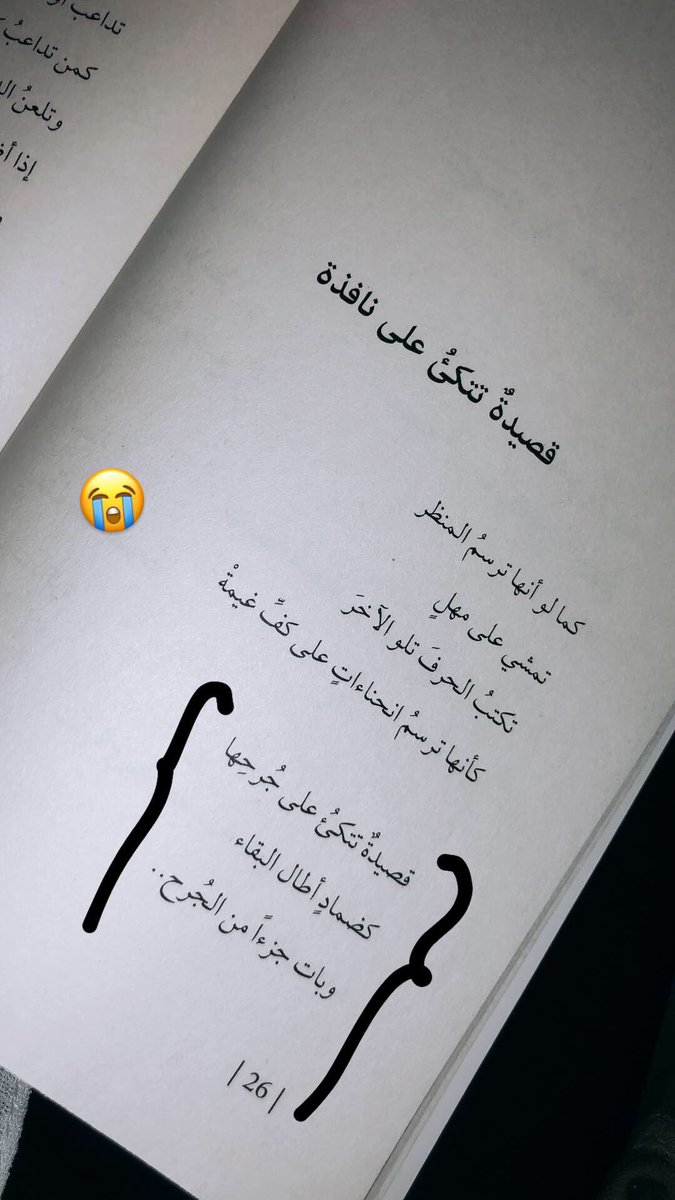 تداعب
كمن تداعبُ
وتلعنُ
إذا
قصيدةٌ تتكئُ على نافذة
كما لو أنها ترسمُ المنظر
تمشي على مهلٍ
تكتبُ الحرفَ تلو الآخرَ
كأنها ترسمُ انحناءاتٍ على كفِّ غيمةْ
قصيدةٌ تتكئُ على جُرحِها
كضمادٍ أطال البقاء
وبات جزءاً من الجُرح..
| 26 |